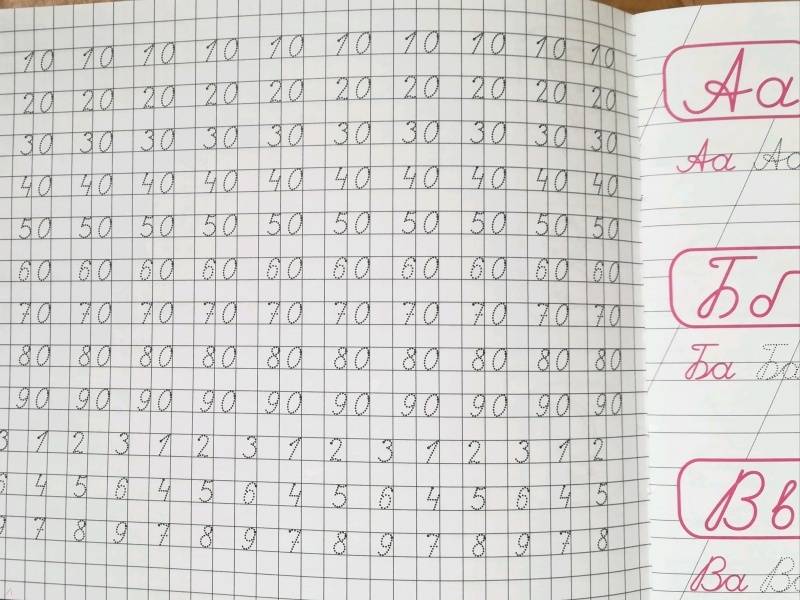 10 10 10 10 10 10 10 10 10 10
20 20 20 20 20 20 20 20 20 20
30 30 30 30 30 30 30 30 30 30
40 40 40 40 40 40 40 40 40 40
50 50 50 50 50 50 50 50 50 50
60 60 60 60 60 60 60 60 60 60
70 70 70 70 70 70 70 70 70 70
80 80 80 80 80 80 80 80 80 80
90 90 90 90 90 90 90 90 90 90
3 1 2 3 1 2 3 1 2 3 1 2 3 1 2
6 4 5 6 4 5 6 4 5 6 4 5 6 4 5
9 7 8 9 7 8 9 7 8 9 7 8 9 7 8
Аа
Аа Аа
Бб
Ба Ба
Вв
Ва Ва